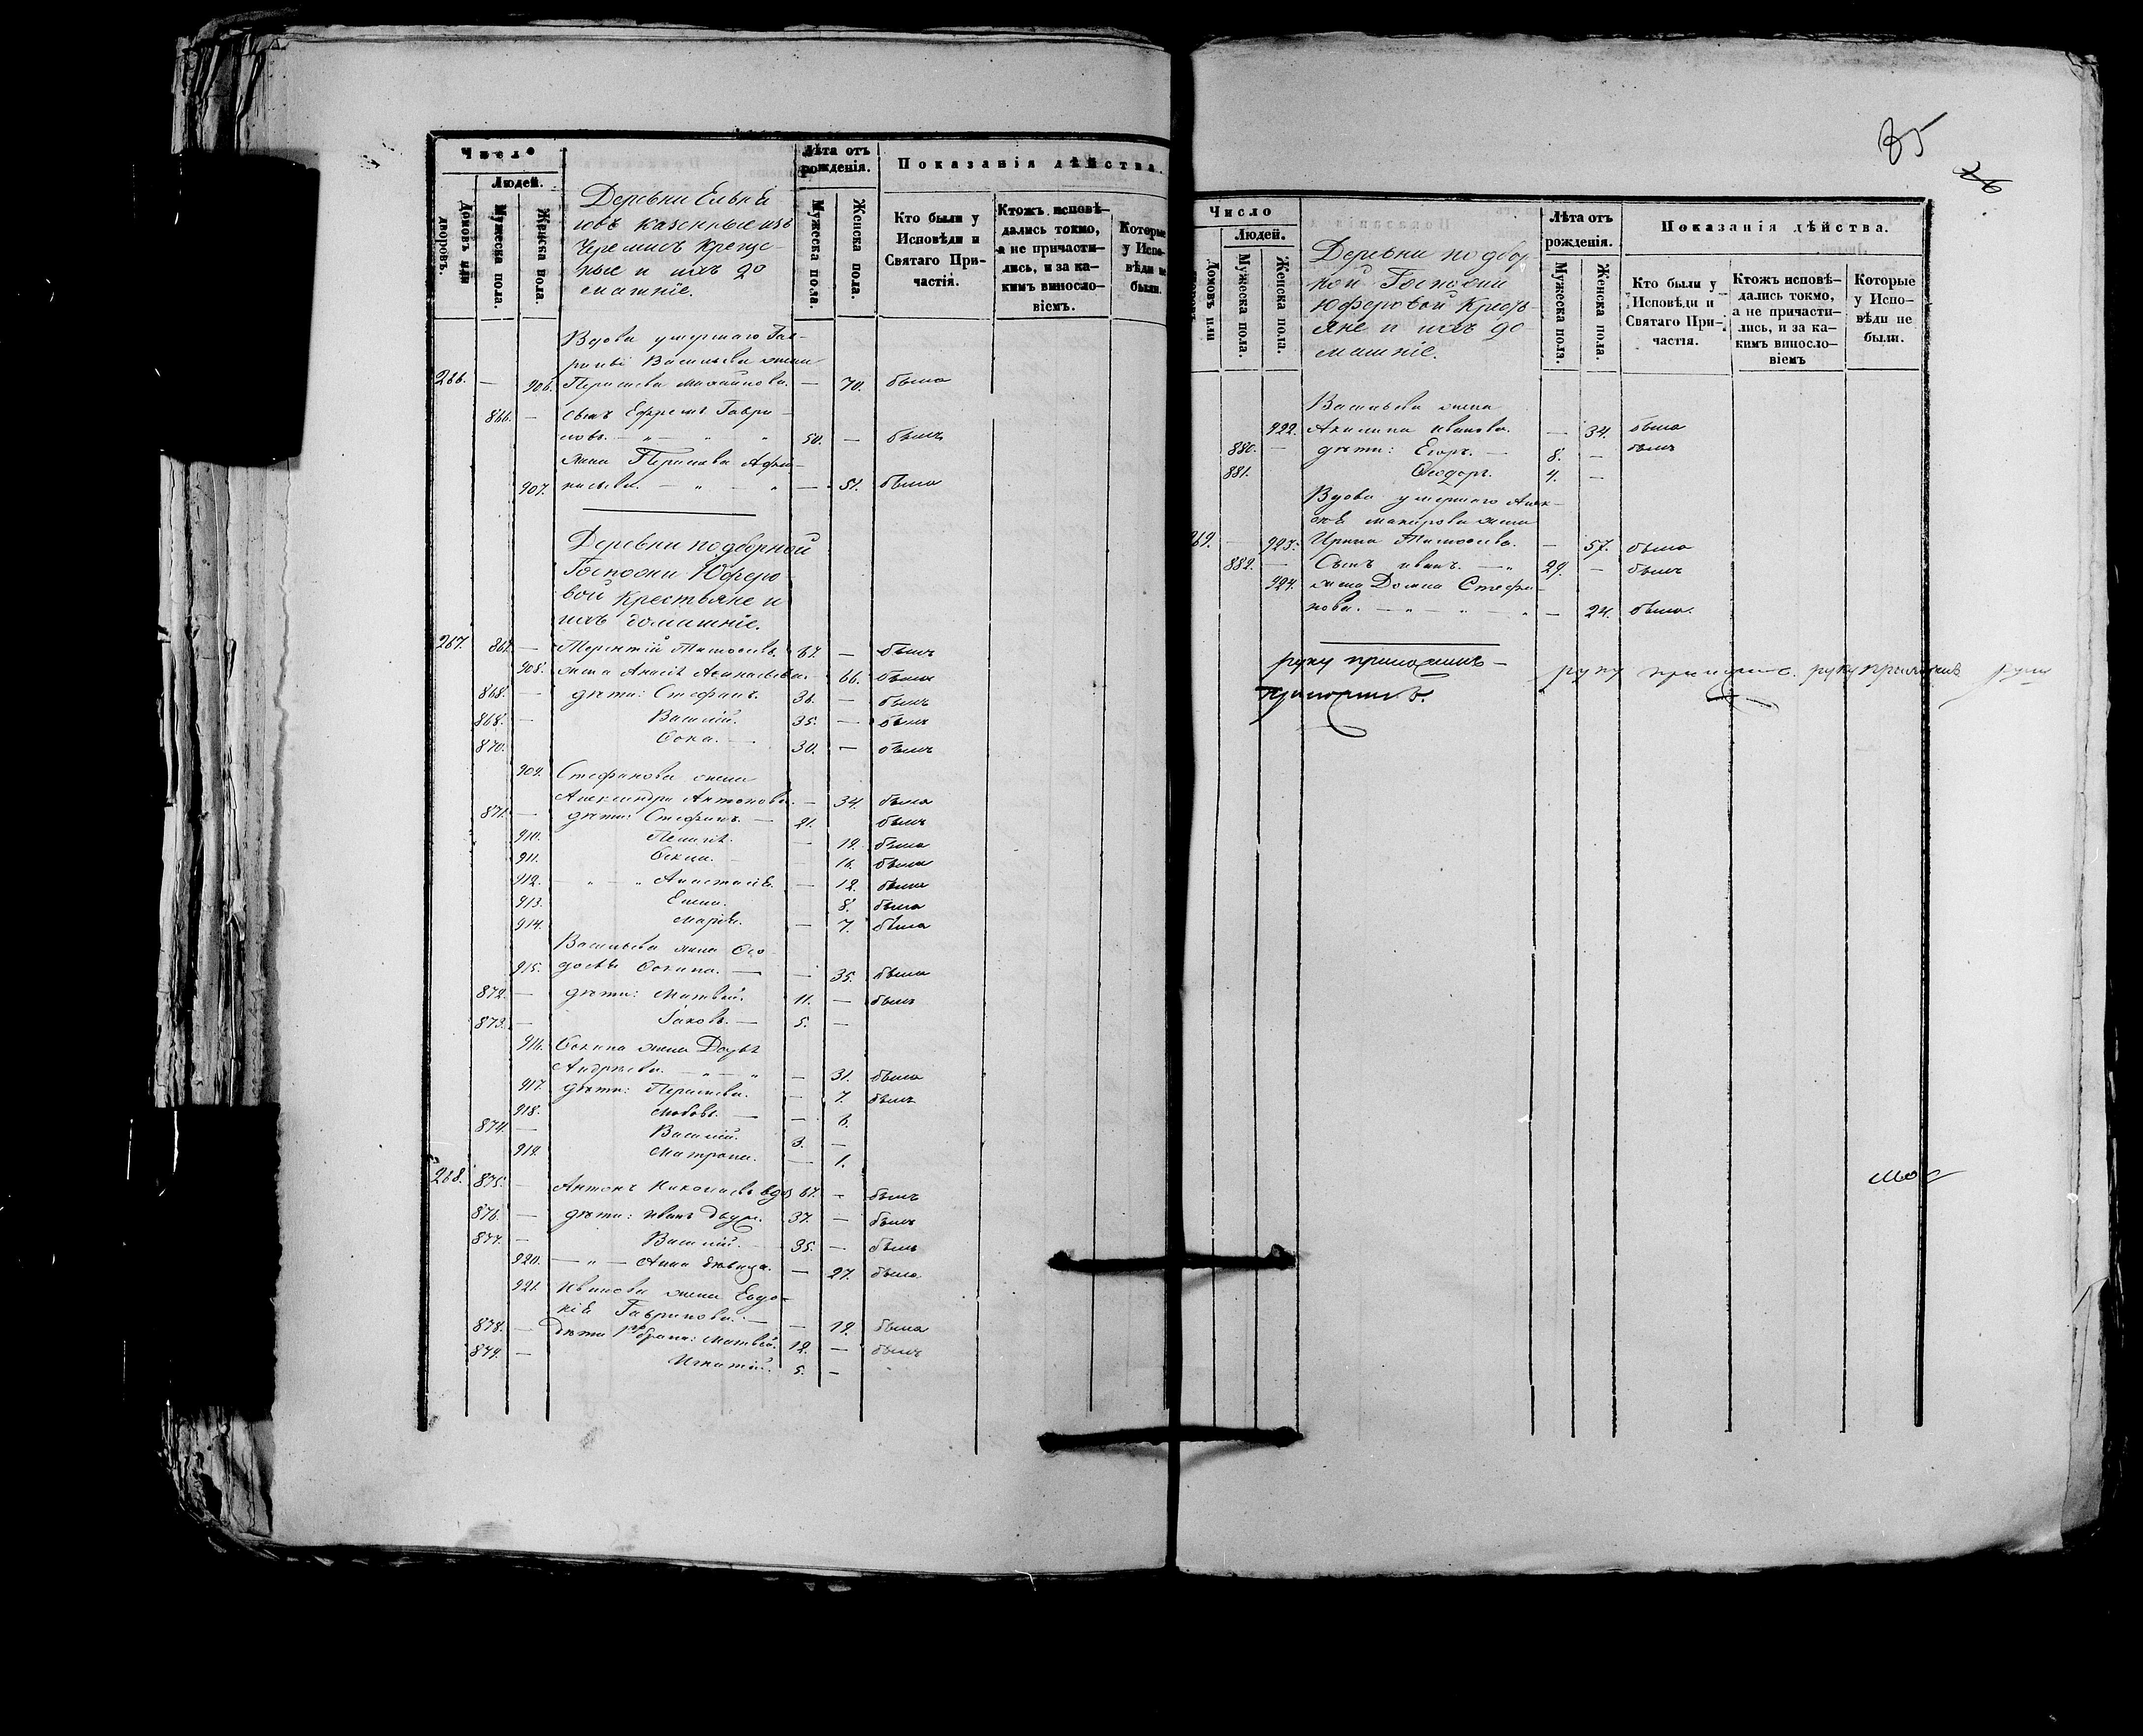 Число
Людей.
Домовъ или дворовъ.
Мужеска пола.
Женска пола.
Лѣта отъ рожденія.
Мужеска пола.
Женска пола.
Показанія дѣйства.
Кто были у Исповѣди и Святаго Причастія.
Ктожъ исповѣдались токмо, а не причастились, и за какимъ винословіемъ.
Которые у Исповѣди не были.
Деревни
казенные изъ
Черемисъ креще-
ные и ихъ до
машніе.
Вдова умершаго Гав-
Васильева жена
266. — 906. — 70. была
866. — сынъ Ефремъ Гаври-
ловъ. — 50. — былъ
жена
907. — 51. была
Деревни подворной
Госпожи Юферо
вой крестьяне и
ихъ домашніе.
267. 867. — Терентій 67. — былъ
908. жена 66. была
868. — дѣти: Стефанъ. 36. — былъ
868. — Василій. 35. — былъ
870. — 30. — былъ
909. Стефанова жена
Александра Антонова. — 34. была
871. — дѣти: Стефанъ. — 21. былъ
910. Пелагія. — 19. была
911. 16. была
912. Анастасія. — 12. была
913. Елена. 8. была
914. Марія. — 7. была
Васильева жена Ѳео
915. — 35. была
872. — дѣти: Матвѣй. 11. — былъ
873. — Іаковъ. — 5. —
916. жена
Андреева. — 31. была
917. дѣти: — 7. былъ
918. Любовь. — — 6.
874. — Василій. 3. —
919. Матрона. — 1.
268. 875. — Антонъ Николаевъ вдов 67. — былъ
876. — дѣти: Иванъ 37. — былъ
877. — Василій. 35. — былъ
920. — Анна дѣвица. — 27. была
921. Иванова жена Евдо-
кія Гаврилова. — — 19. была
878. — Дѣти брака: Матвѣй. 12. — былъ
879. — Игнатій. 5. —
85
26
Число
Людей.
Домовъ или
Мужеска пола.
Женска пола.
Лѣта отъ рожденія.
Мужеска пола.
Женска пола.
Показанія дѣйства.
Кто были у Исповѣди и Святаго Причастія.
Ктожъ исповѣдались токмо, а не причастились, и за какимъ винословіемъ
Которые у Исповѣди не были.
Деревни подвор
ной Госпожи
Юферовой Кресть-
яне и ихъ до-
машніе.
Васильева жена
922. Акилина Иванова. — 34. была
880. — дѣти: Егоръ. — 8. — былъ
881. Ѳеодоръ. 4. —
Вдова умершаго Алек-
жена
269. — 923. Ирина — 57. была
882. — Сынъ Иванъ. — 29. — былъ
924. жена Домна Стефа-
нова. — 24. была.
руку приложилъ —
руку руку приложилъ